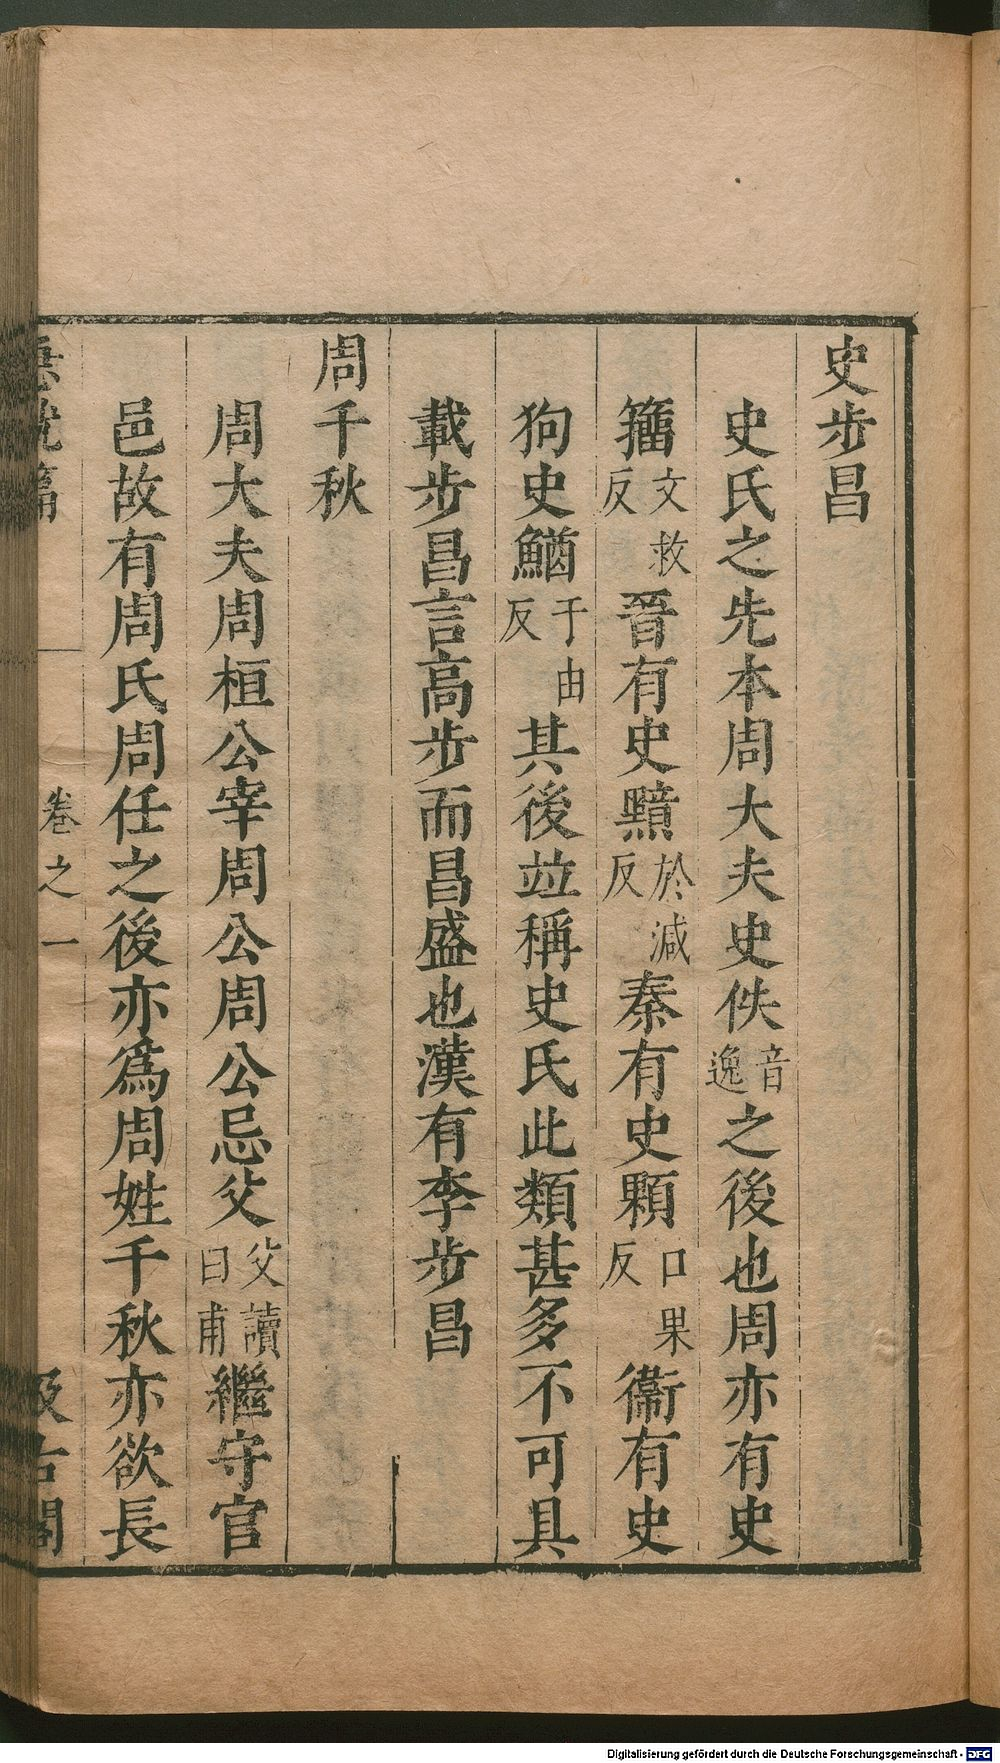 史步昌
史氏之先本周大夫史佚音逸之後也周亦有史
籀文救反晉有史黶於減反秦有史顆口果反衞有史
狗史鰌于由反其後竝稱史氏此類甚多不可具
載步昌言高步而昌盛也漢有李步昌
周千秋
周大夫周桓公宰周公周公忌父父讀曰甫繼守官
邑故有周氏周任之後亦爲周姓千秋亦欲長
急就篇 卷之一 汲古閣
Digitalisierung gefördert durch die Deutsche Forschungsgemeinschaft - DFG